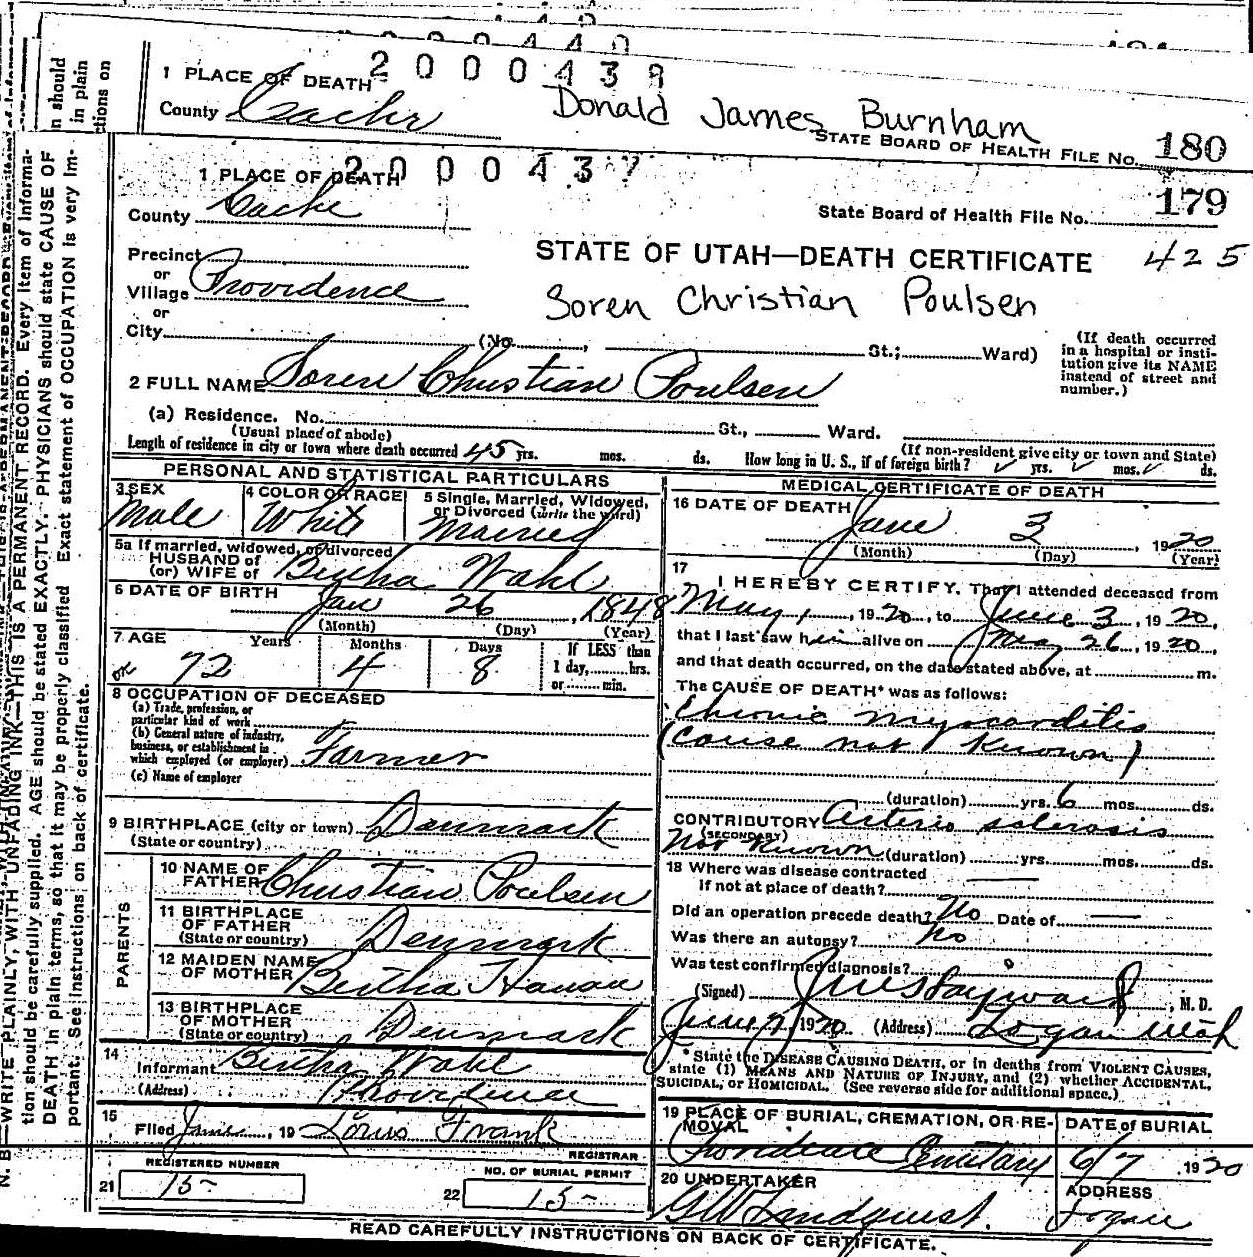 1 PLACE OF DEATH 2000438
County Cache Donald James Burnham
STATE BOARD OF HEALTH FILE No. 180
1 PLACE OF DEATH 2000437
179
County Cache State Board of Health File No.
STATE OF UTAH—DEATH CERTIFICATE 425
Precinct
or
Village Providence
Soren Christian Poulsen
or
City (No. , St.; Ward)
(If death occurred in a hospital or institution give its NAME instead of street and number.)
2 FULL NAME Soren Christian Poulsen
(a) Residence. No. St., Ward.
(Usual place of abode) (If non-resident give city or town and State)
Length of residence in city or town where death occurred 45 yrs. mos. ds. How long in U. S., if of foreign birth? yrs. mos. ds.
PERSONAL AND STATISTICAL PARTICULARS
3 SEX 4 COLOR OR RACE 5 Single, Married, Widowed, or Divorced (write the word)
Male White Married
5a If married, widowed, or divorced
HUSBAND of
(or) WIFE of Bertha Wahl
6 DATE OF BIRTH Jan 26, 1848
(Month) (Day) (Year)
7 AGE Years Months Days If LESS than
1 day, hrs.
or min.
or 72 4 8
8 OCCUPATION OF DECEASED
(a) Trade, profession, or
particular kind of work
(b) General nature of industry,
business, or establishment in
which employed (or employer) Farmer
(c) Name of employer
9 BIRTHPLACE (city or town) Denmark
(State or country)
PARENTS
10 NAME OF
FATHER Christian Poulsen
11 BIRTHPLACE
OF FATHER
(State or country) Denmark
12 MAIDEN NAME
OF MOTHER Bertha
13 BIRTHPLACE
OF MOTHER
(State or country) Denmark
14
Informant Bertha Wahl
(Address) Providence
15
Filed June, 19 Louis Frank
REGISTRAR
REGISTERED NUMBER NO. OF BURIAL PERMIT
21 15- 22 15-
MEDICAL CERTIFICATE OF DEATH
16 DATE OF DEATH June 3, 1920
(Month) (Day) (Year)
17
I HEREBY CERTIFY, That I attended deceased from
May 1, 1920, to June 3, 1920,
that I last saw him alive on May 26, 1920,
and that death occurred, on the date stated above, at m.
The CAUSE OF DEATH* was as follows:
Chronic myocarditis
(cause not known)
(duration) yrs. 6 mos. ds.
CONTRIBUTORY Arterio sclerosis
(SECONDARY)
Not Known (duration) yrs. mos. ds.
18 Where was disease contracted
if not at place of death?
Did an operation precede death? No Date of
Was there an autopsy? no
Was test confirmed diagnosis?
(Signed) Hayward, M. D.
June 7, 1920 (Address) Logan Utah
* State the DISEASE CAUSING DEATH, or in deaths from VIOLENT CAUSES,
state (1) MEANS AND NATURE OF INJURY, and (2) whether ACCIDENTAL,
SUICIDAL, or HOMICIDAL. (See reverse side for additional space.)
19 PLACE OF BURIAL, CREMATION, OR RE- DATE OF BURIAL
MOVAL
Providence Cemetary 6/7, 1920
20 UNDERTAKER ADDRESS
GW Lindquist. Logan
READ CAREFULLY INSTRUCTIONS ON BACK OF CERTIFICATE.
n should
in plain
tions on
N. B.—WRITE PLAINLY, WITH UNFADING INK—THIS IS A PERMANENT RECORD. Every item of Informa-
tion should be carefully supplied. AGE should be stated EXACTLY. PHYSICIANS should state CAUSE OF
DEATH in plain terms, so that it may be properly classified Exact statement of OCCUPATION is very Im-
portant. See instructions on back of certificate.